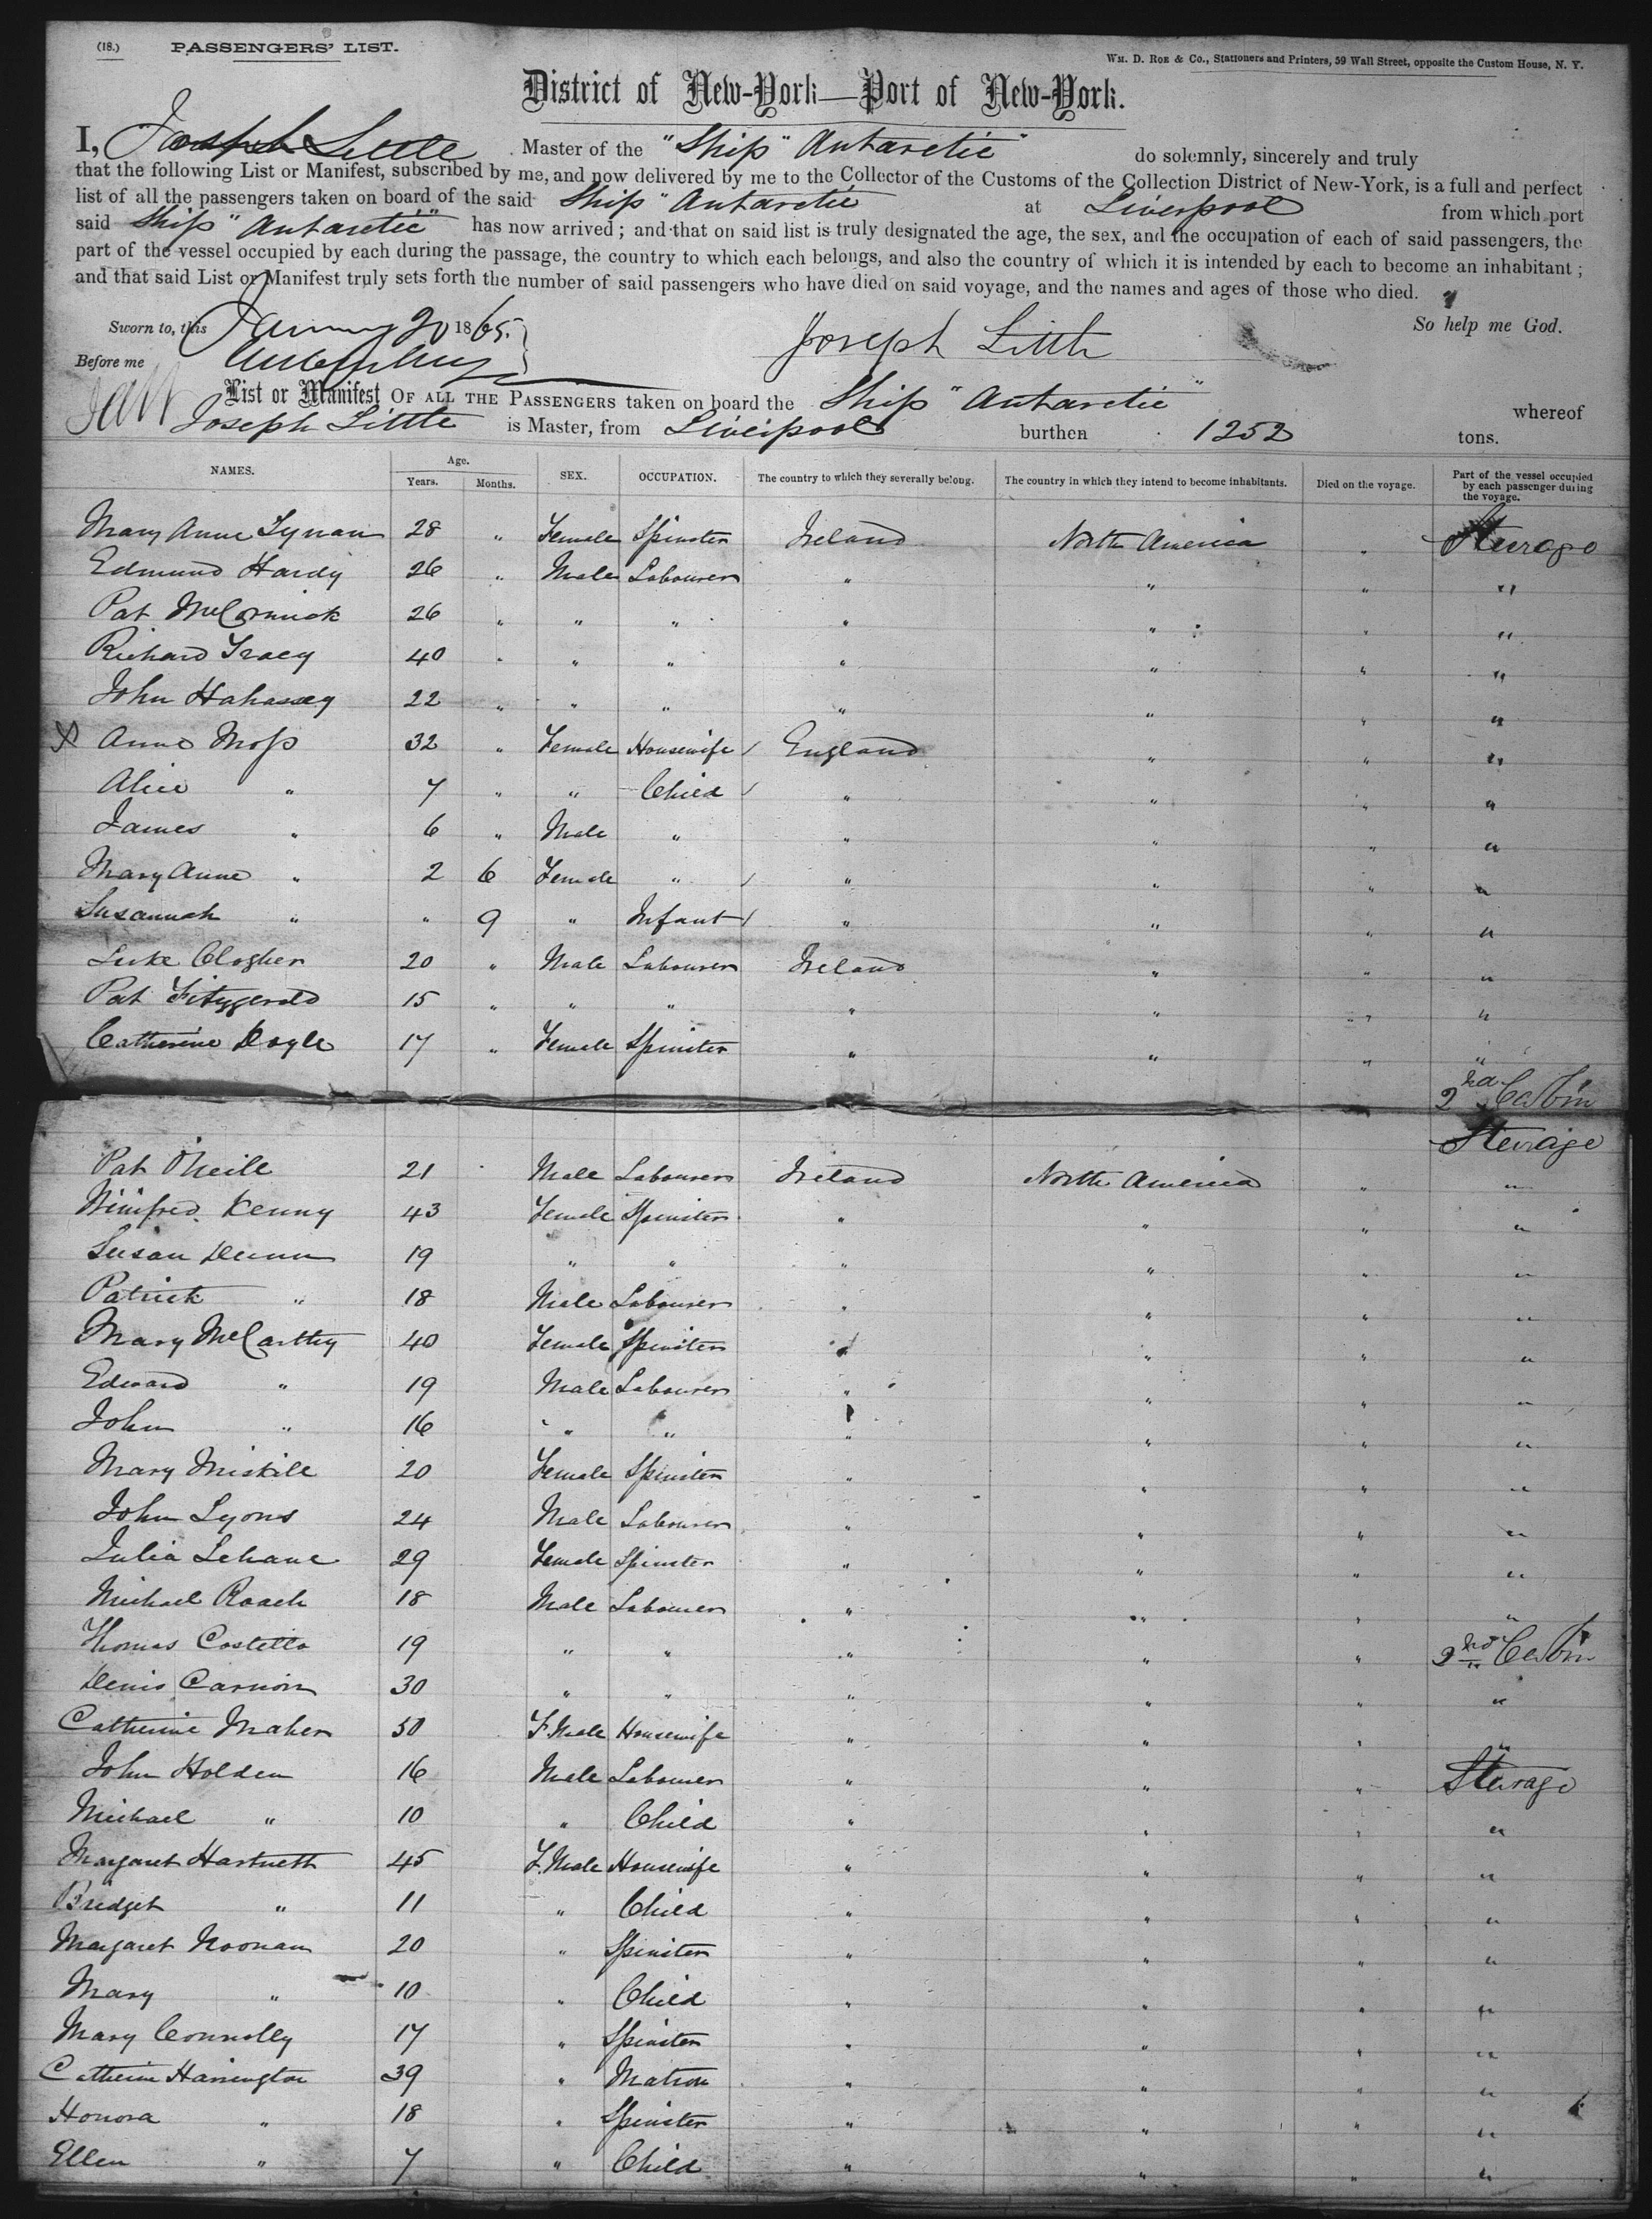 (18.) PASSENGERS' LIST.
Wm. D. Roe & Co., Stationers and Printers, 59 Wall Street, opposite the Custom House, N. Y.
District of New-York—Port of New-York.
I, Joseph Little Master of the "Ship" Antarctic" do solemnly, sincerely and truly
that the following List or Manifest, subscribed by me, and now delivered by me to the Collector of the Customs of the Collection District of New-York, is a full and perfect
list of all the passengers taken on board of the said Ship "Antarctic at Liverpool from which port
said Ship "Antarctic" has now arrived; and that on said list is truly designated the age, the sex, and the occupation of each of said passengers, the
part of the vessel occupied by each during the passage, the country to which each belongs, and also the country of which it is intended by each to become an inhabitant;
and that said List or Manifest truly sets forth the number of said passengers who have died on said voyage, and the names and ages of those who died.
Sworn to, this January 20 1865. Joseph Little So help me God.
Before me
List or Manifest OF ALL THE PASSENGERS taken on board the Ship "Antarctic" whereof
Joseph Little is Master, from Liverpool burthen 1252 tons.
NAMES. Age. Years. Months. SEX. OCCUPATION. The country to which they severally belong. The country in which they intend to become inhabitants. Died on the voyage. Part of the vessel occupied by each passenger during the voyage.
Mary Anne Lynan 28 " Female Spinster Ireland North America " Steerage
Edmund Hardy 26 " Male Labourer " " " "
Pat McCormick 26 " " " " " " "
Richard Tracy 40 " " " " " " "
John Hahassey 22 " " " " " " "
X Anne Moss 32 " Female Housewife / England " " "
Alice " 7 " " Child / " " " "
James " 6 " Male " " " " "
Mary Anne " 2 6 Female " / " " " "
Susannah " " 9 " Infant / " " " "
Luke Clogher 20 " Male Labourer Ireland " " "
Pat Fitzgerald 15 " " " " " " "
Catherine Doyle 17 " Female Spinster " " " "
2nd Cabin
Steerage
Pat O'Neill 21 Male Labourer Ireland North America " "
Winifred Kenny 43 Female Spinster " " " "
Susan Dunn 19 " " " " " "
Patrick " 18 Male Labourer " " " "
Mary McCarthy 40 Female Spinster " " " "
Edward " 19 Male Labourer " " " "
John " 16 " " " " " "
Mary Miskill 20 Female Spinster " " " "
John Lyons 24 Male Labourer " " " "
Julia Lehane 29 Female Spinster " " " "
Michael Roach 18 Male Labourer " " " "
Thomas Costello 19 " " " " " 2nd Cabin
Denis Carnion 30 " " " " " "
Catherine Maher 50 F.Male Housewife " " " "
John Holden 16 Male Labourer " " " Steerage
Michael " 10 " Child " " " "
Margaret Hartnett 45 F.Male Housewife " " " "
Bridget " 11 " Child " " " "
Margaret Noonan 20 " Spinster " " " "
Mary " 10 " Child " " " "
Mary Connolly 17 " Spinster " " " "
Catherine Harrington 39 " Matron " " " "
Honora " 18 " Spinster " " " "
Ellen " 7 " Child " " " "